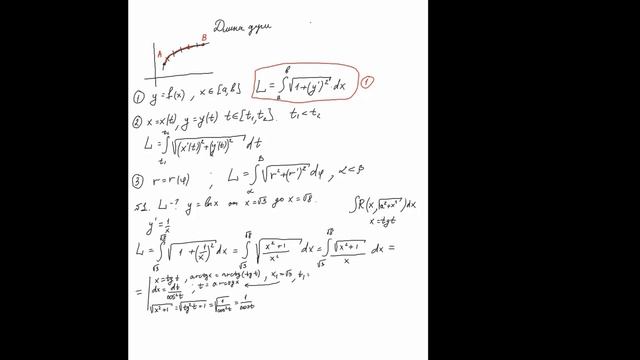 Длина дуги
A B
① y = f(x), x ∈ [a,b] L = ∫ₐᵇ √(1+(y')²) dx ①
② x = x(t), y = y(t) t ∈ [t₁,t₂]. t₁ < t₂
L = ∫ₜ₁ᵗ² √((x'(t))²+(y'(t))²) dt
③ r = r(φ) ; L = ∫_α^β √(r²+(r')²) dφ, α < β
№1. L-? y = ln x от x = √3 до x = √8.
∫R(x, √(a²+x²)) dx
x = tg t
y' = 1/x
L = ∫_√3^√8 √(1+(1/x)²) dx = ∫_√3^√8 √((x²+1)/x²) dx = ∫_√3^√8 √(x²+1)/x dx =
= | x = tg t, arctg x = arctg(tg t), x₁ = √3, t₁ =
dx = dt/cos²t ; t = arctg x
√(x²+1) = √(tg²t+1) = √(1/cos²t) = 1/cos t